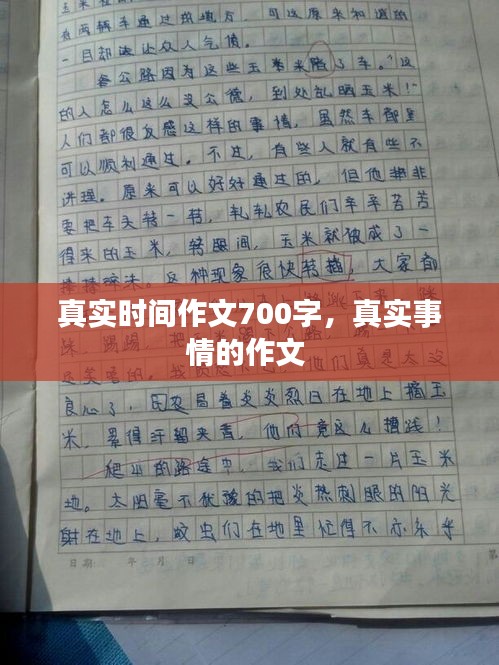 有两辆车通过的地方，可这原来和谐的
一目却被让众人气愤。
各公路因为这些玉米米陷了车。"这
的人怎么这么没公德，到处乱晒玉米！"
人们都很反感这样的事情，虽然车都是
可以顺利通过。不过，有些人就有些不
讲理。原来可以好好通过的，但他非
要把车头转一转，轧轧农民们辛辛苦苦
得来的玉米，转眼间，玉米就被成了一
这种现象很快转播，大家都
真实时间作文700字，真实事
情的作文
们真是太没
良心了，农民冒着炎炎烈日在地上摘玉
米，累得汗流夹背，他们竟这么糟践！
爬山的路途中，我们走过一片玉米
地。太阳毫不犹豫的把炎热刺眼的阳光
射在地上，蚊虫们在地里忙得不亦乐乎
日期： 年 月 日 第